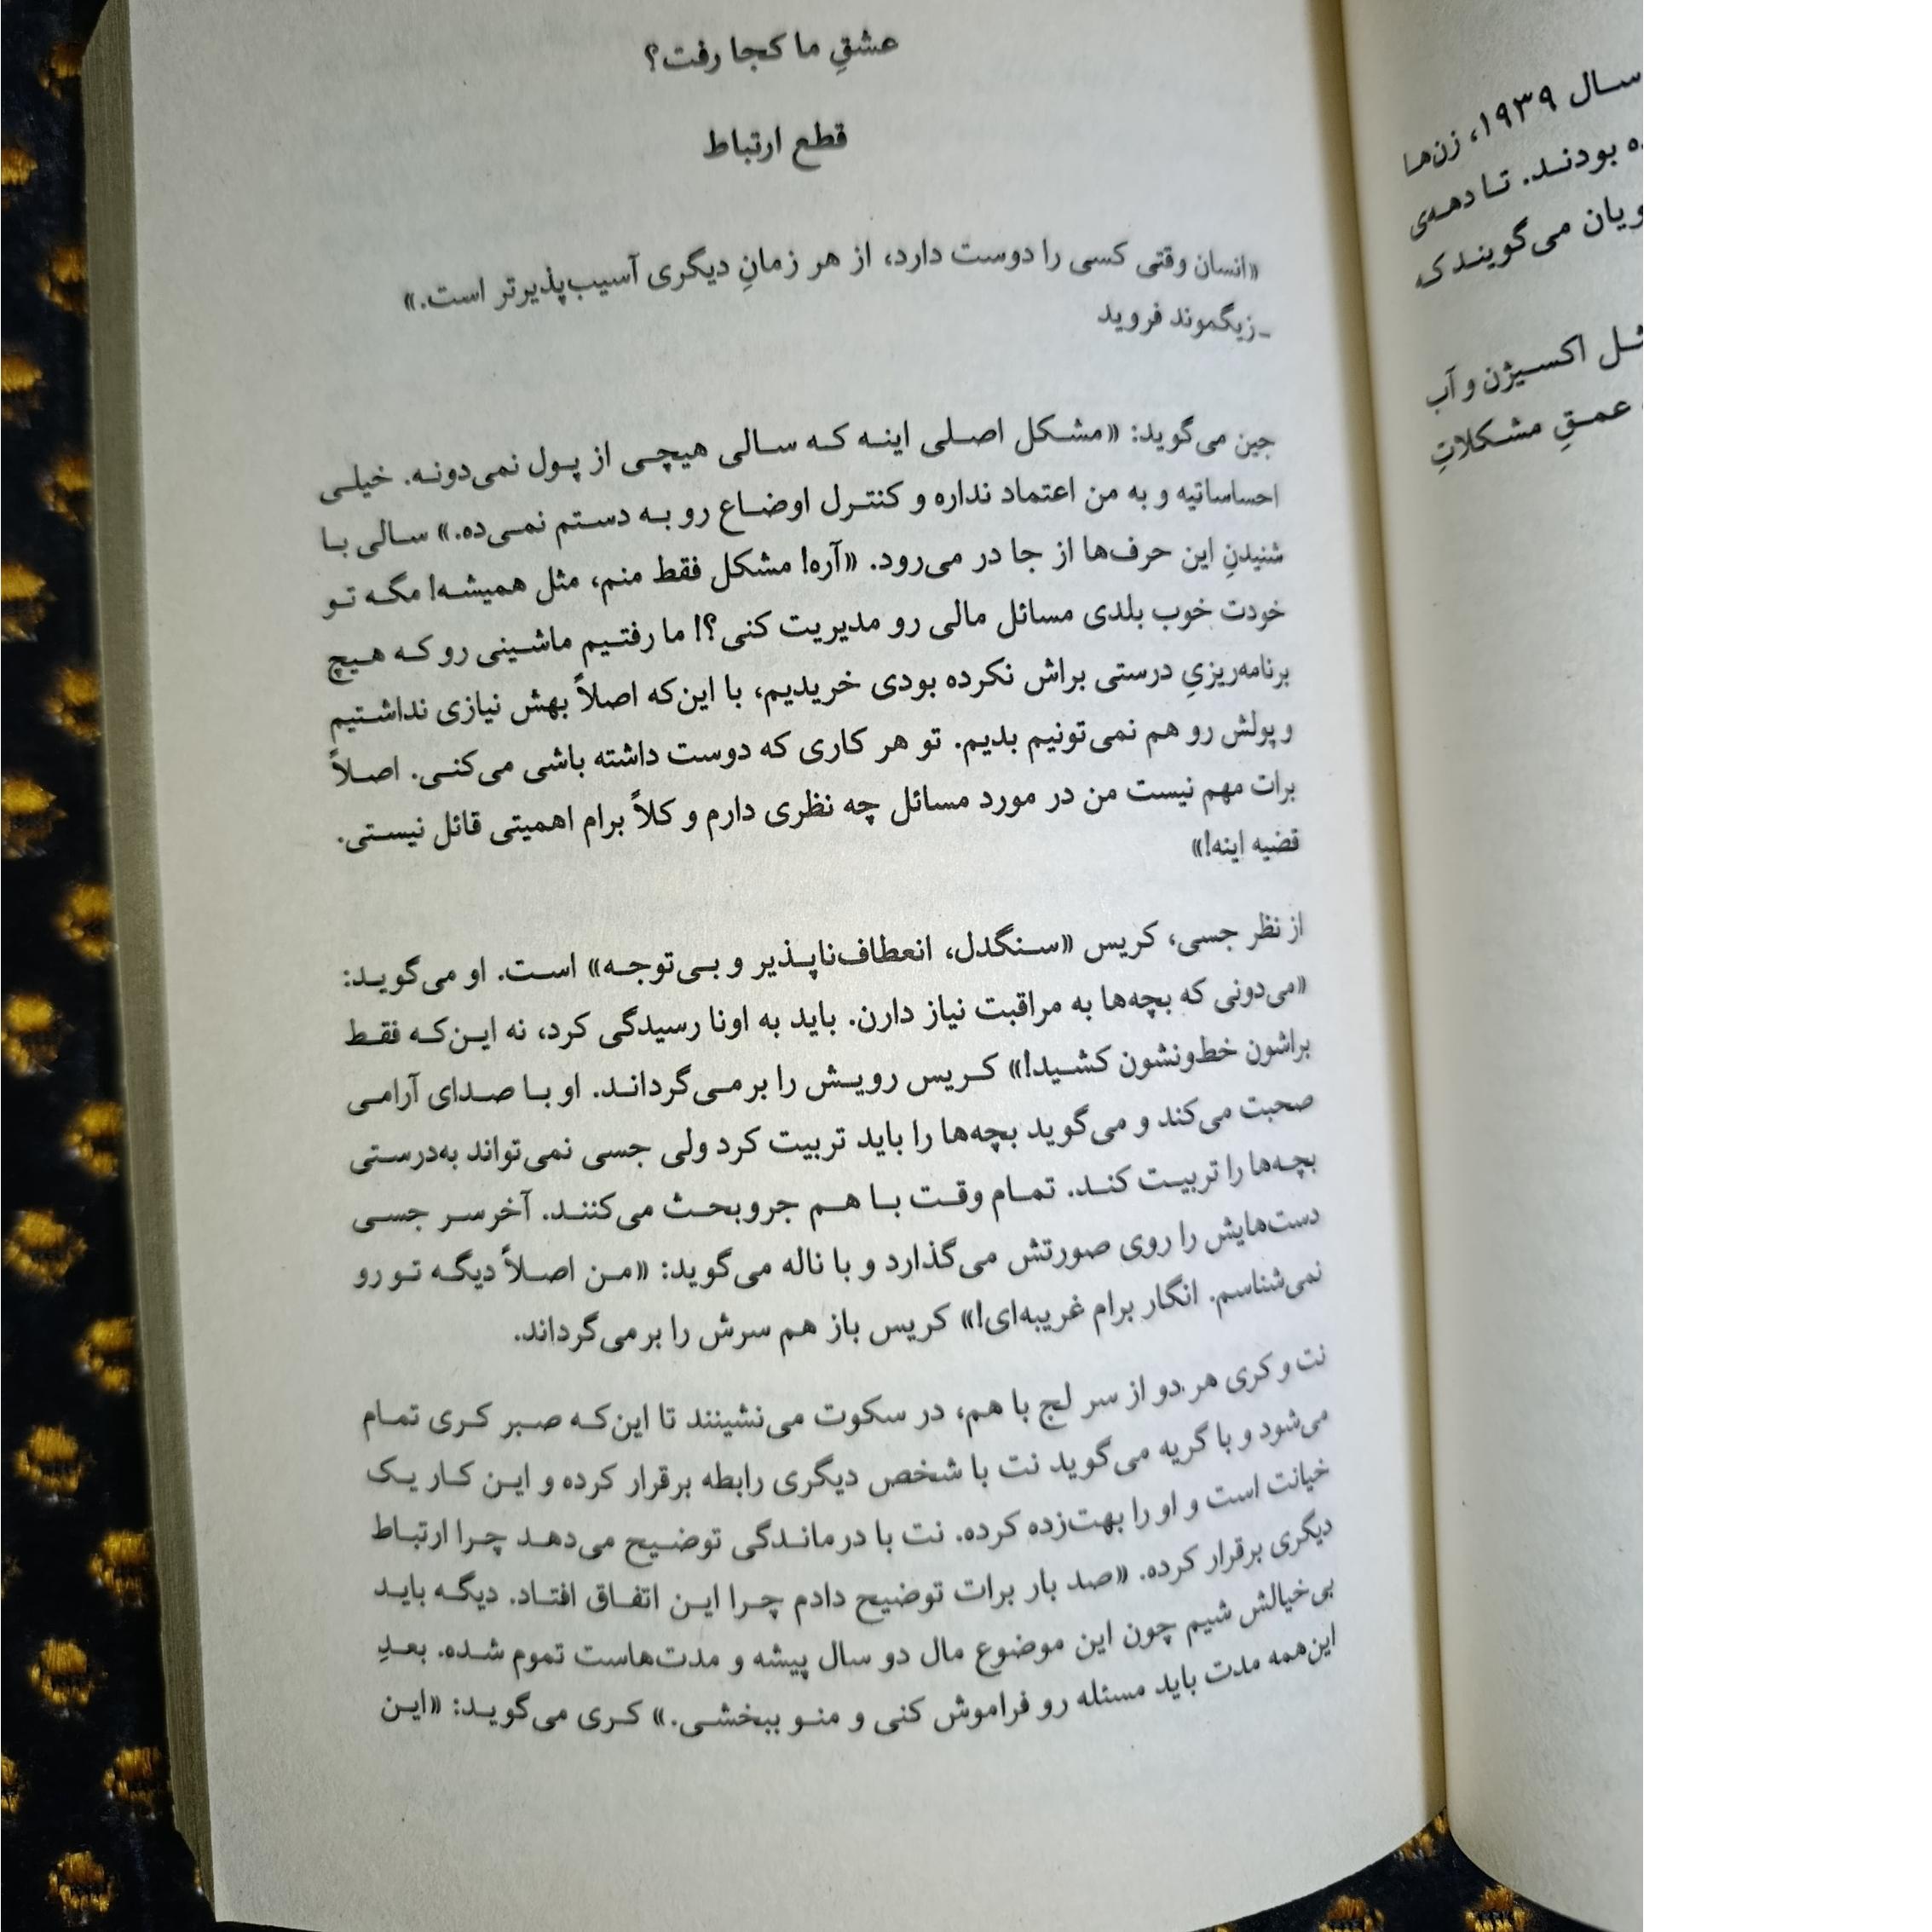 عشقِ ما کجا رفت؟
قطع ارتباط
«انسان وقتی کسی را دوست دارد، از هر زمانِ دیگری آسیب‌پذیرتر است.»
ـ زیگموند فروید
جین می‌گوید: «مشکل اصلی اینه که سالی هیچی از پول نمی‌دونه. خیلی
احساساتیه و به من اعتماد نداره و کنترل اوضاع رو به دستم نمی‌ده.» سالی با
شنیدنِ این حرف‌ها از جا در می‌رود. «آره! مشکل فقط منم، مثل همیشه! مگه تو
خودت خوب بلدی مسائل مالی رو مدیریت کنی؟! ما رفتیم ماشینی رو که هیچ
برنامه‌ریزیِ درستی براش نکرده بودی خریدیم، با این‌که اصلاً بهش نیازی نداشتیم
و پولش رو هم نمی‌تونیم بدیم. تو هر کاری که دوست داشته باشی می‌کنی. اصلاً
برات مهم نیست من در مورد مسائل چه نظری دارم و کلاً برام اهمیتی قائل نیستی.
قضیه اینه!»
از نظر جسی، کریس «سنگدل، انعطاف‌ناپذیر و بی‌توجه» است. او می‌گوید:
«می‌دونی که بچه‌ها به مراقبت نیاز دارن. باید به اونا رسیدگی کرد، نه این‌که فقط
براشون خط‌ونشون کشید!» کریس رویش را برمی‌گرداند. او با صدای آرامی
صحبت می‌کند و می‌گوید بچه‌ها را باید تربیت کرد ولی جسی نمی‌تواند به‌درستی
بچه‌ها را تربیت کند. تمام وقت با هم جروبحث می‌کنند. آخرسر جسی
دست‌هایش را روی صورتش می‌گذارد و با ناله می‌گوید: «من اصلاً دیگه تو رو
نمی‌شناسم. انگار برام غریبه‌ای!» کریس باز هم سرش را برمی‌گرداند.
نت و کری هر دو از سر لج با هم، در سکوت می‌نشینند تا این‌که صبر کری تمام
می‌شود و با گریه می‌گوید نت با شخص دیگری رابطه برقرار کرده و این کار یک
خیانت است و او را بهت‌زده کرده. نت با درماندگی توضیح می‌دهد چرا ارتباط
دیگری برقرار کرده. «صد بار برات توضیح دادم چرا این اتفاق افتاد. دیگه باید
بی‌خیالش شیم چون این موضوع مال دو سال پیشه و مدت‌هاست تموم شده. بعدِ
این‌همه مدت باید مسئله رو فراموش کنی و منو ببخشی.» کری می‌گوید: «این
سال ۱۹۳۹، زن‌ها
بودند. تا دهه‌ی
می‌گویند که
اکسیژن و آب
عمقِ مشکلاتِ